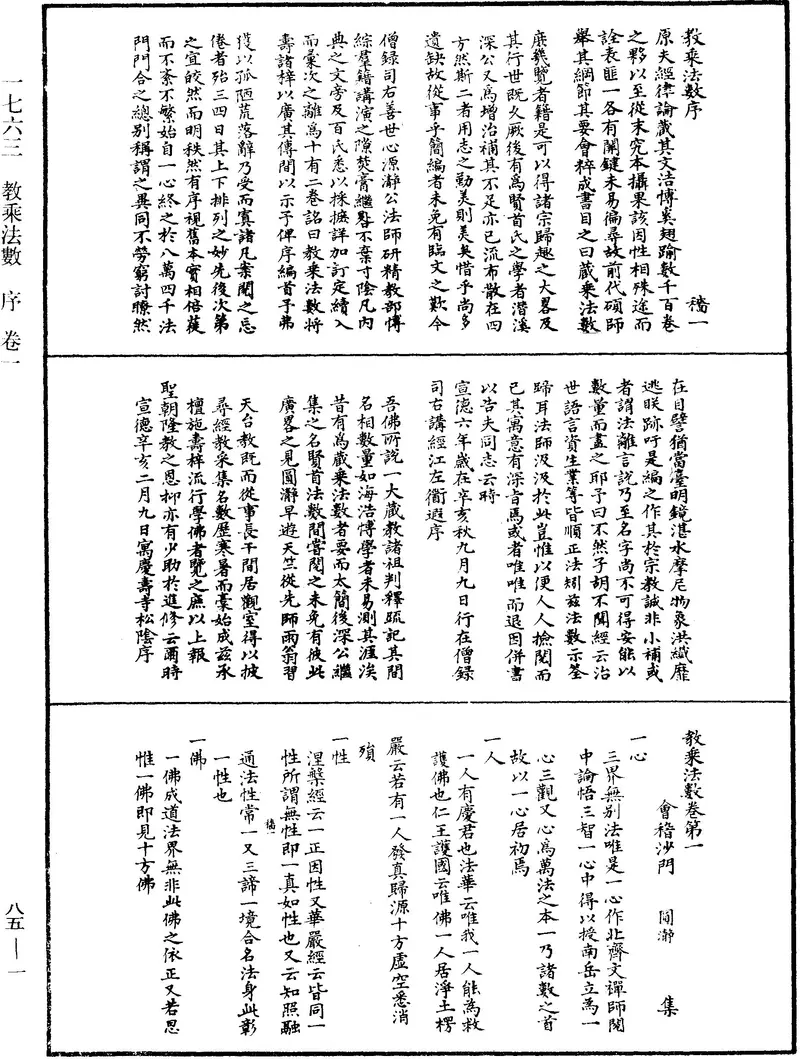 一七六三　教乘法數　序　卷一
八五—一
教乘法數序　　　　　　　　　　𥡴一
原夫經律論藏其文浩博奚翅踰數千百卷
之夥以至從末究本攝果該因性相殊途而
詮表匪一各有關鍵未易徧尋故前代碩師
舉其綱節其要會稡成書目之曰藏乘法數
庶幾覽者籍是可以得諸宗歸趣之大畧及
其行世既久厥後有為賢首氏之學者潛溪
深公又為增治補其不足亦已流布散在四
方然斯二者用志之勤美則美矣惜乎尚多
遺缺故從事乎簡編者未免有臨文之歎今
僧錄司右善世心源瀞公法師研精教部博
綜羣籍講演之隙焚膏繼晷不棄寸陰凡內
典之文旁及百氏悉以採摭詳加訂定續入
而彙次之離為十有二卷詺曰教乘法數將
壽諸梓以廣其傳間以示予俾序編首予弗
獲以孤陋荒落辭乃受而寘諸几案閱之忘
倦者殆三四日其上下排列之妙先後次第
之宜皎然而明秩然有序視舊本實相倍蓰
而不紊不繁始自一心終之於八萬四千法
門門合之總別稱謂之異同不勞窮討瞭然
在目譬猶當臺明鏡湛水摩尼物象洪纖靡
逃眹跡吁是編之作其於宗教誠非小補或
者謂法離言說乃至名字尚不可得安能以
數量而盡之耶予曰不然子胡不聞經云治
世語言資生業等皆順正法矧茲法數示筌
歸耳法師汲汲於此豈惟以便人人撿閱而
已其寓意有深旨焉或者唯唯而退因併書
以告夫同志云時
宣德六年歲在辛亥秋九月九日行在僧錄
司右講經江左衞遐序
吾佛所說一大藏教諸祖判釋疏記其間
名相數量如海浩博學者未易測其涯涘
昔有為藏乘法數者要而太簡後深公繼
集之名賢首法數間嘗閱之未免有彼此
廣畧之見圓瀞早遊天竺從先師雨翁習
天台教既而從事長干間居觀室得以披
尋經教采集名數歷寒暑而橐始成茲承
檀施壽梓流行學佛者覽之庶以上報
聖朝隆教之恩抑亦有少助於進修云爾時
宣德辛亥二月九日寓慶壽寺松陰序
教乘法數卷第一
會稽沙門　圓瀞　集
一心
三界無別法唯是一心作北齊文禪師閱
中論悟三智一心中得以授南岳立為一
心三觀又心為萬法之本一乃諸數之首
故以一心居初焉
一人
一人有慶君也法華云唯我一人能為救
護佛也仁王護國云唯佛一人居淨土楞
嚴云若有一人發真歸源十方虛空悉消
殞
一性
涅槃經云一正因性又華嚴經云皆同一
性所謂無性即一真如性也又云知照融
通法性常一又三諦一境合名法身此彰
一性也
一佛
一佛成道法界無非此佛之依正又若思
惟一佛即見十方佛
𥡴一